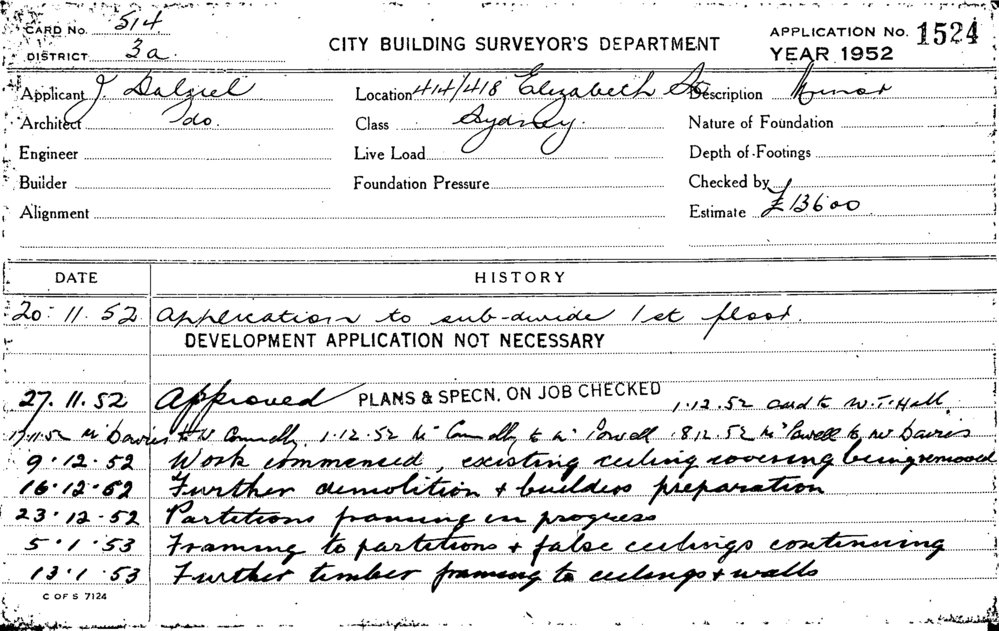 CARD No. 514
DISTRICT 3a.
CITY BUILDING SURVEYOR'S DEPARTMENT
APPLICATION No. 1524
YEAR 1952
Applicant J Dalziel Location 414/418 Elizabeth St Description Minor
Architect do. Class Sydney. Nature of Foundation
Engineer Live Load Depth of Footings
Builder Foundation Pressure Checked by
Alignment Estimate £13600
DATE HISTORY
20.11.52 Application to sub-divide 1st floor.
DEVELOPMENT APPLICATION NOT NECESSARY
27.11.52 Approved PLANS & SPECN. ON JOB CHECKED 1.12.52 card to W.T. Hall
Mr Davies to Mr Connolly 1.12.52 Mr Connolly to Mr Powell 8.12.52 Mr Powell to Mr Davies
9.12.52 Work commenced, existing ceiling covering being removed
16.12.52 Further demolition & builders preparation
23.12.52 Partitions framing in progress
5.1.53 Framing to partitions & false ceilings continuing
13.1.53 Further timber framing to ceilings & walls
C OF S 7124